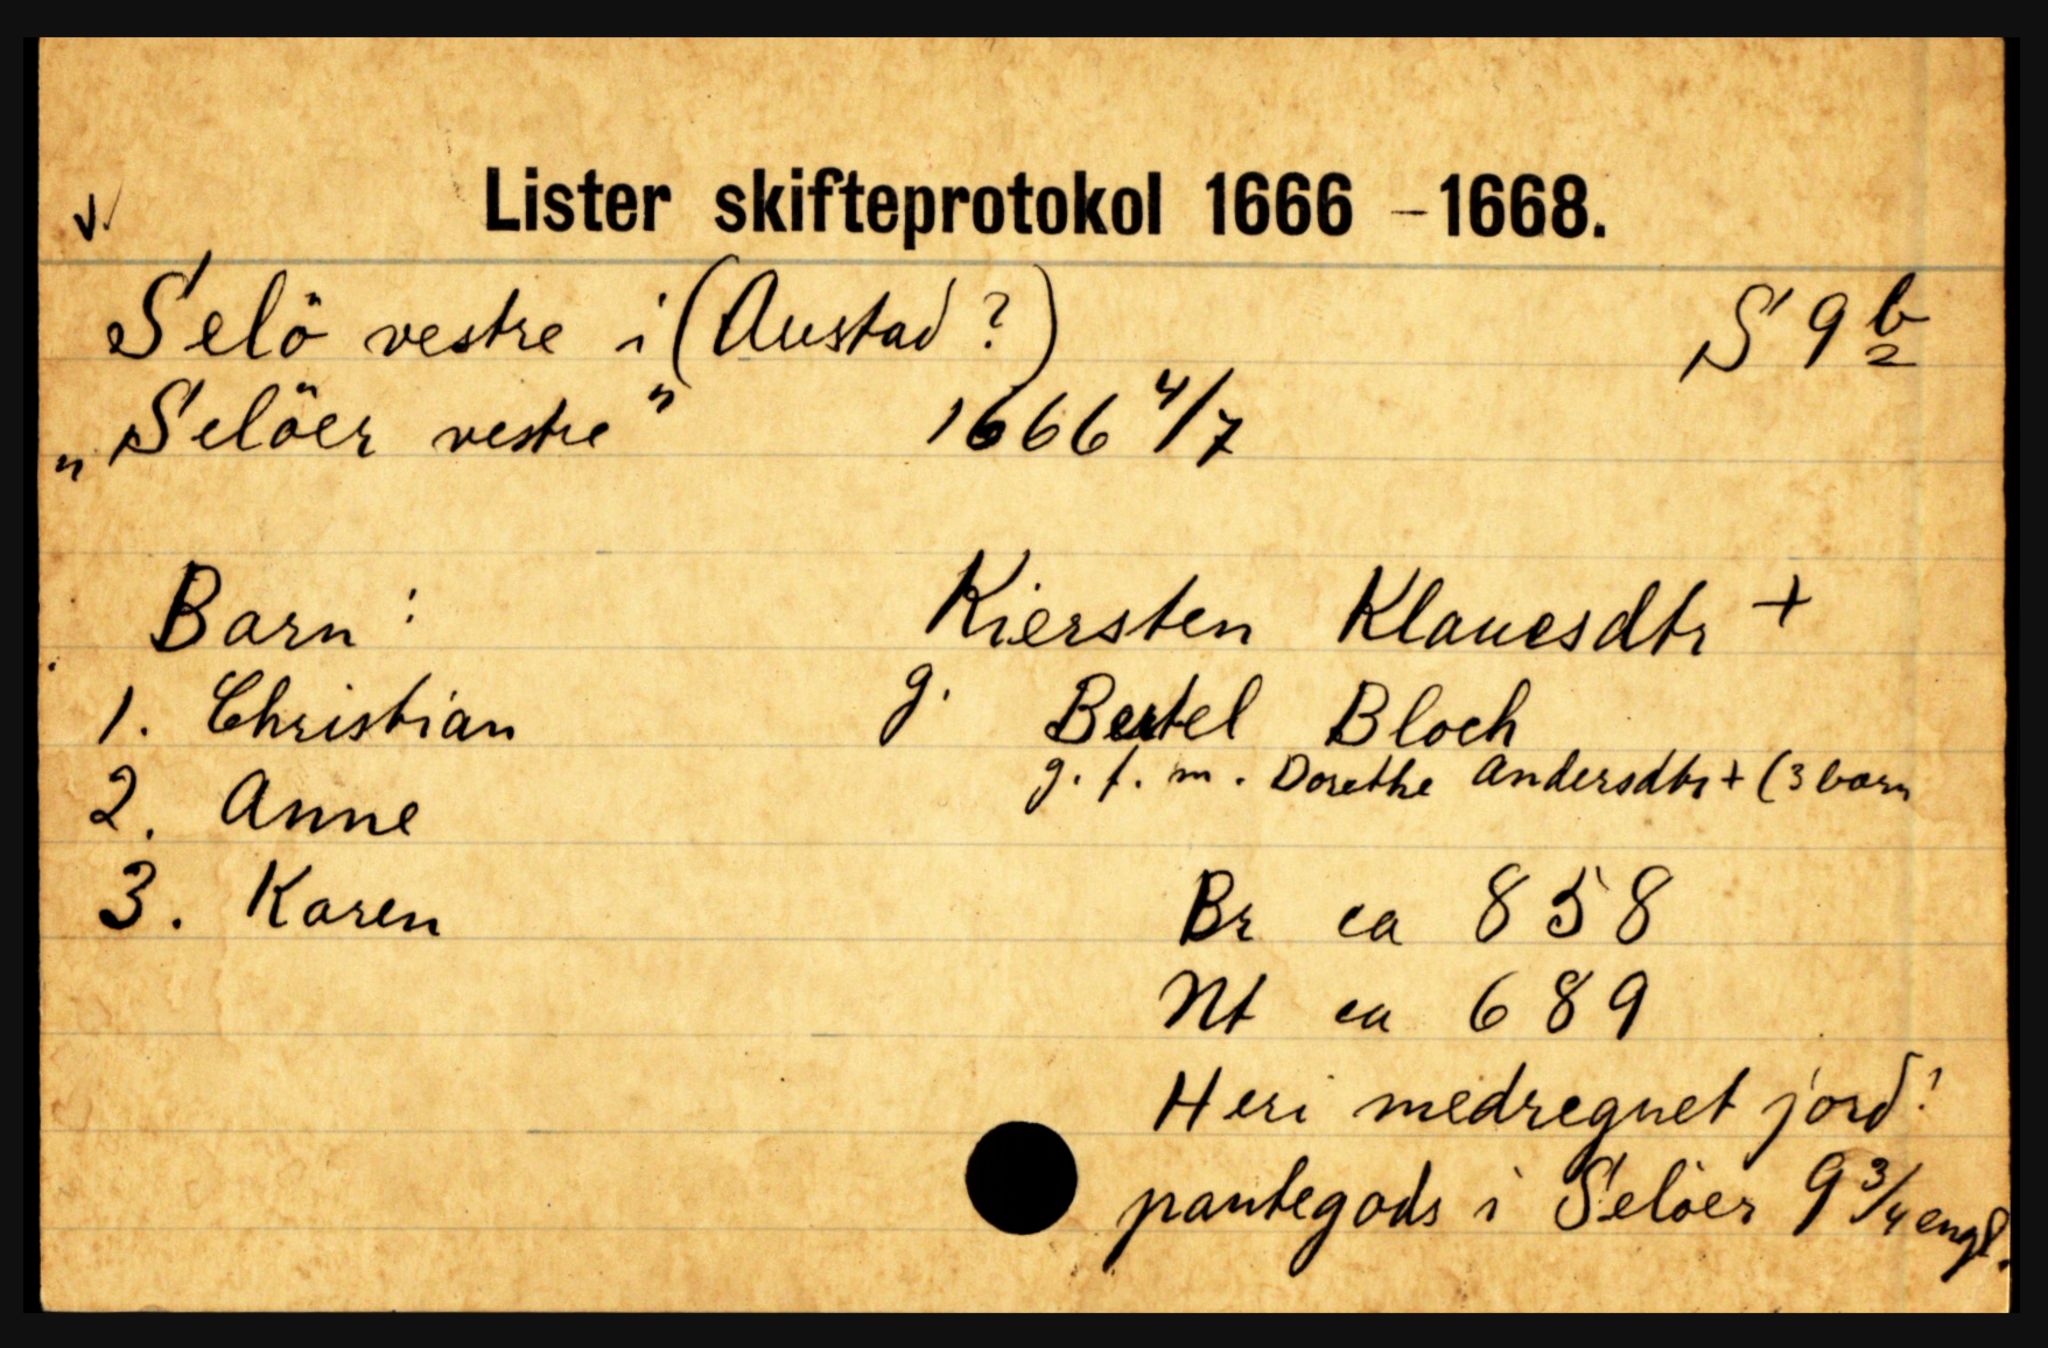 Lister skifteprotokol 1666 - 1668.
v.
Selö vestre i (Austad?) S 9 b 2
"Selöer vestre" 1666 4/7
Barn: Kiersten Klauesdtr +
1. Christian g. Bertel Bloch
g. f. m. Dorethe Andersdtr + (3 barn
2. Anne
3. Karen Br ca 858
Nt ca 689
Heri medregnet jord!
pantegods i Selöer 9 3/4 engl.